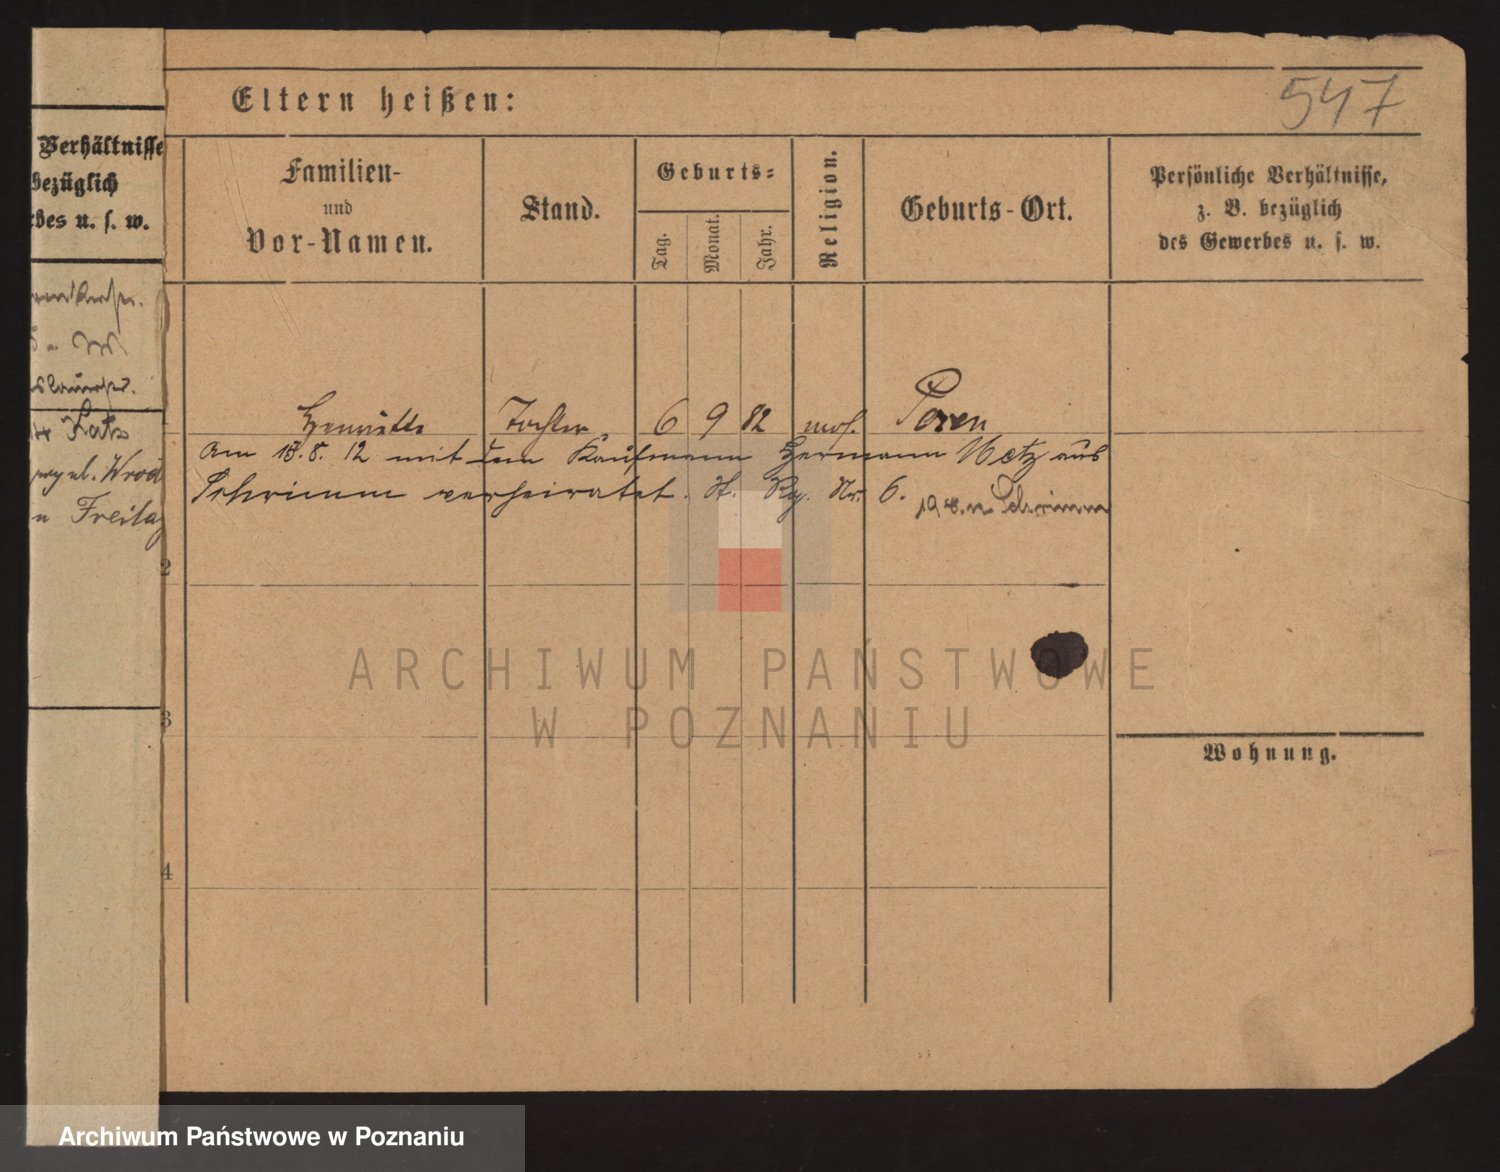 Verhältnisse
bezüglich
rbes u. s. w.
Latz
Wrod
n Freitag
547
Eltern heißen:
Familien-
und
Vor-Namen.
Stand.
Geburts-
Tag.
Monat.
Jahr.
Religion.
Geburts-Ort.
Persönliche Verhältnisse,
z. B. bezüglich
des Gewerbes u. s. w.
Henriette Tochter 6 9 82 mos. Posen
Am 13.8.12 mit dem Kaufmann Hermann Metz aus
Schrimm verheiratet. Hf. Reg. Nr. 6. Schrimm
2
3
4
Wohnung.
ARCHIWUM PAŃSTWOWE
W POZNANIU
Archiwum Państwowe w Poznaniu